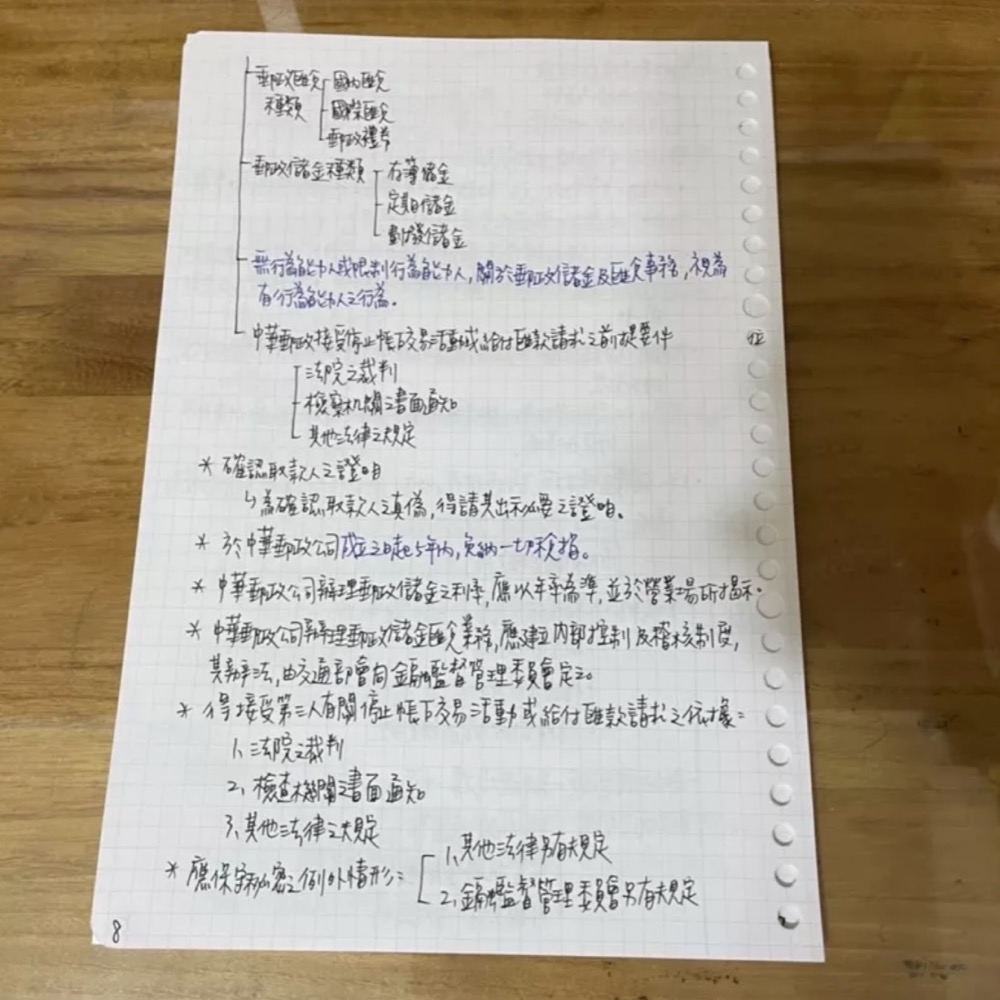 郵政匯兌 國內匯兌
種類 國際匯兌
郵政禮券
郵政儲金種類 存簿儲金
定期儲金
劃撥儲金
無行為能力人或限制行為能力人,關於郵政儲金及匯兌事務,視為
有行為能力人之行為。
中華郵政接受停止帳戶交易活動或給付匯款請求之前提要件
法院之裁判
檢察机關之書面通知
其他法律之規定
* 確認取款人之證明
↳為確認取款人之真偽,得請其出示必要之證明。
* 於中華郵政公司成立之日起5年內,免納一切稅捐。
* 中華郵政公司辦理郵政儲金之利率,應以年率為準,並於營業場所揭示。
* 中華郵政公司辦理郵政儲金匯兌業務,應建立內部控制及稽核制度,
其辦法,由交通部會同金融監督管理委員會定之。
* 得接受第三人有關停止帳戶交易活動或給付匯款請求之依據:
1、法院之裁判
2、檢查機關之書面通知
3、其他法律之規定
* 應保守秘密之例外情形: 1、其他法律另有規定
2、金融監督管理委員會另有規定
8